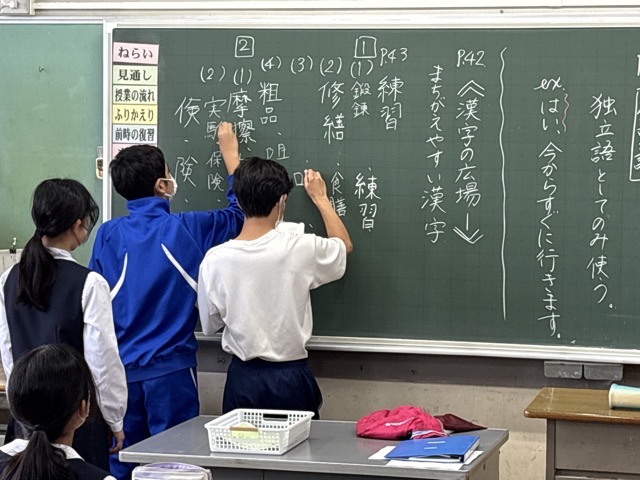 独立語としてのみ使う。
ex. はい、今からすぐに行きます。
P42 《漢字の広場一》
まちがえやすい漢字
P43 練習 練習
1
(1) 鍛錬
(2) 修繕・食膳
(3)
(4) 粗品・
2
(1) 摩擦
(2) 実験・保険
倹・険・
ねらい
見通し
授業の流れ
ふりかえり
前時の復習